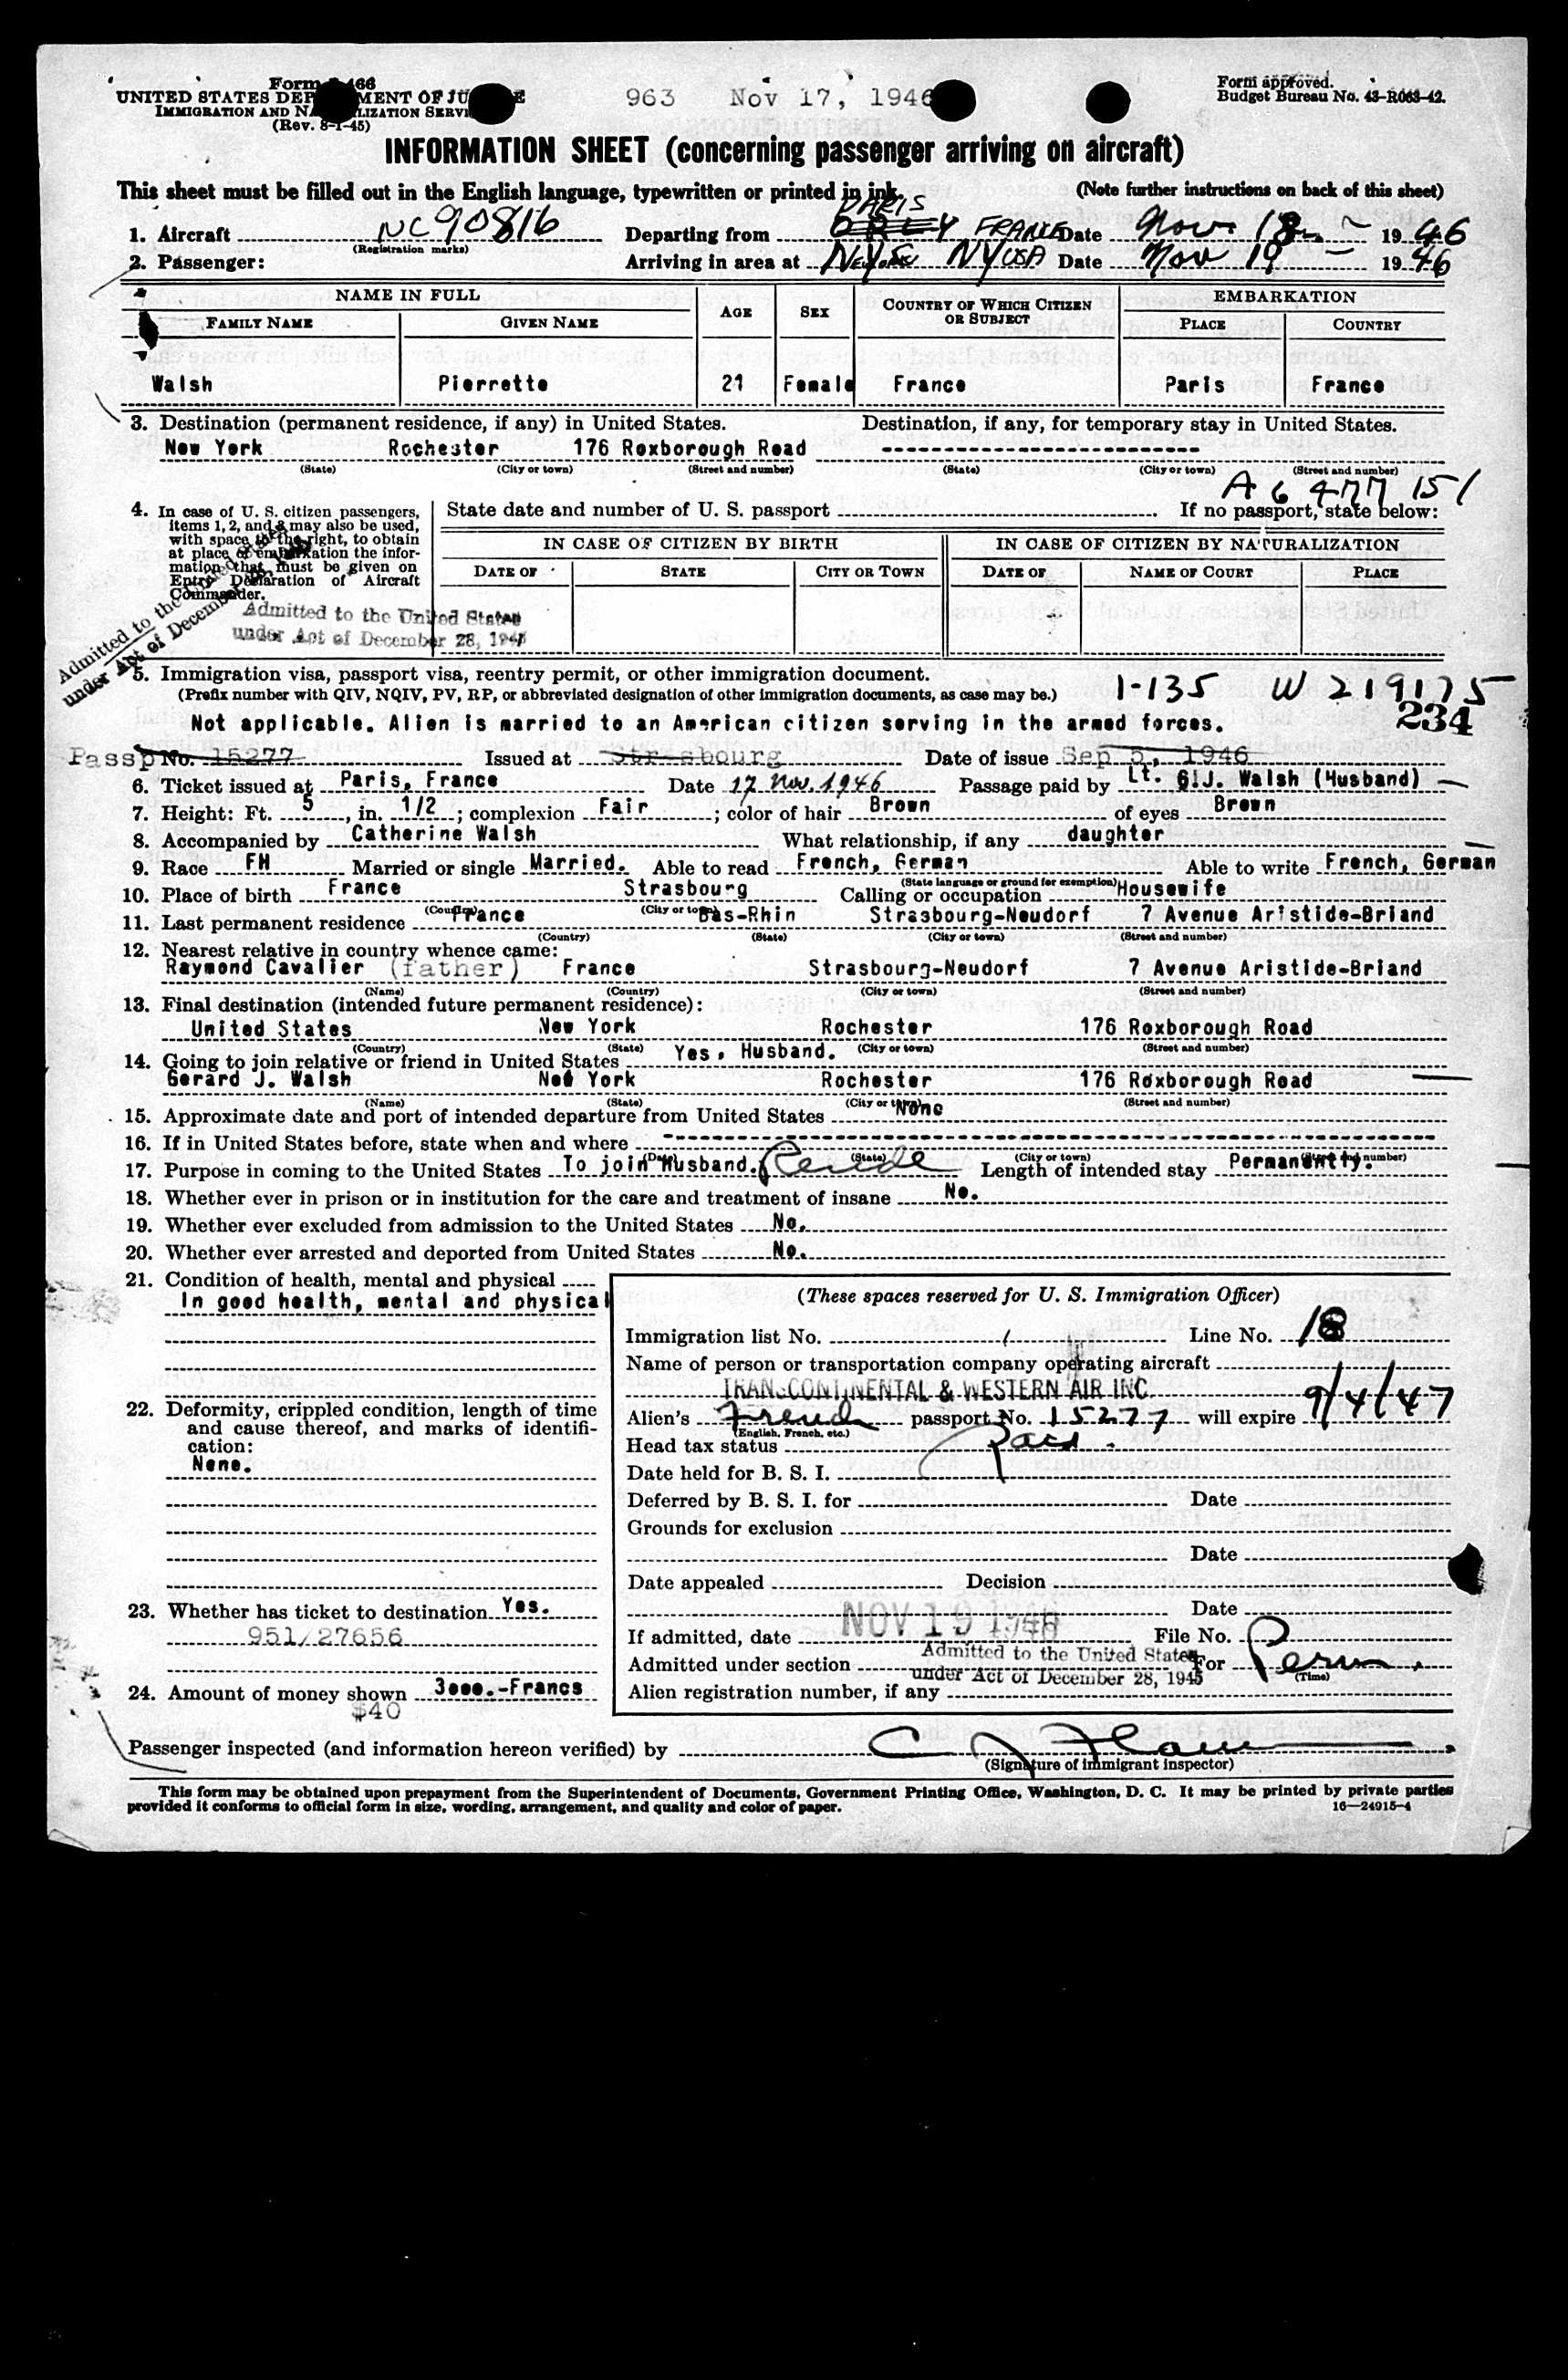 Form 466
UNITED STATES DEPARTMENT OF JUSTICE
IMMIGRATION AND NATURALIZATION SERVICE
(Rev. 8-1-45)
963 Nov 17, 1946
Form approved.
Budget Bureau No. 43-R063-42.
INFORMATION SHEET (concerning passenger arriving on aircraft)
This sheet must be filled out in the English language, typewritten or printed in ink.
(Note further instructions on back of this sheet)
PARIS
1. Aircraft NC90816 Departing from ORLY FRANCE Date Nov. 18 1946
(Registration marks)
2. Passenger: Arriving in area at New York NY USA Date Nov 19 1946
NAME IN FULL AGE SEX COUNTRY OF WHICH CITIZEN OR SUBJECT EMBARKATION
FAMILY NAME GIVEN NAME PLACE COUNTRY
Walsh Pierrette 21 Female France Paris France
3. Destination (permanent residence, if any) in United States. Destination, if any, for temporary stay in United States.
New York Rochester 176 Roxborough Road -------------------------
(State) (City or town) (Street and number) (State) (City or town) (Street and number)
A6 477 151
4. In case of U. S. citizen passengers, items 1, 2, and 8 may also be used, with space to the right, to obtain at place of embarkation the information that must be given on Entry Declaration of Aircraft Commander.
State date and number of U. S. passport If no passport, state below:
IN CASE OF CITIZEN BY BIRTH IN CASE OF CITIZEN BY NATURALIZATION
DATE OF STATE CITY OR TOWN DATE OF NAME OF COURT PLACE
Admitted to the
under Act of December
Admitted to the United States
under Act of December 28, 1945
5. Immigration visa, passport visa, reentry permit, or other immigration document.
(Prefix number with QIV, NQIV, PV, RP, or abbreviated designation of other immigration documents, as case may be.)
1-135 W 219175
234
Not applicable. Alien is married to an American citizen serving in the armed forces.
Passp No. 15277 Issued at Strasbourg Date of issue Sep 5, 1946
6. Ticket issued at Paris, France Date 17 Nov. 1946 Passage paid by Lt. G.J. Walsh (Husband)
7. Height: Ft. 5, in. 1/2; complexion Fair; color of hair Brown of eyes Brown
8. Accompanied by Catherine Walsh What relationship, if any daughter
9. Race FH Married or single Married. Able to read French, German Able to write French, German
(State language or ground for exemption)
10. Place of birth France Strasbourg Calling or occupation Housewife
(Country) (City or town)
11. Last permanent residence France Bas-Rhin Strasbourg-Neudorf 7 Avenue Aristide-Briand
(Country) (State) (City or town) (Street and number)
12. Nearest relative in country whence came:
Raymond Cavalier (father) France Strasbourg-Neudorf 7 Avenue Aristide-Briand
(Name) (Country) (City or town) (Street and number)
13. Final destination (intended future permanent residence):
United States New York Rochester 176 Roxborough Road
(Country) (State) (City or town) (Street and number)
14. Going to join relative or friend in United States Yes. Husband.
Gerard J. Walsh New York Rochester 176 Roxborough Road
(Name) (State) (City or town) (Street and number)
15. Approximate date and port of intended departure from United States None
16. If in United States before, state when and where
(Date) (State) (City or town) (Street and number)
17. Purpose in coming to the United States To join Husband. Length of intended stay Permanently.
18. Whether ever in prison or in institution for the care and treatment of insane No.
19. Whether ever excluded from admission to the United States No.
20. Whether ever arrested and deported from United States No.
21. Condition of health, mental and physical
In good health, mental and physical
22. Deformity, crippled condition, length of time and cause thereof, and marks of identification:
None.
23. Whether has ticket to destination Yes.
951/27656
24. Amount of money shown 3000.-Francs
$40
(These spaces reserved for U. S. Immigration Officer)
Immigration list No. Line No. 18
Name of person or transportation company operating aircraft
TRANSCONTINENTAL & WESTERN AIR INC.
Alien's French passport No. 15277 will expire 9/4/47
(English, French, etc.)
Head tax status
Date held for B. S. I.
Deferred by B. S. I. for Date
Grounds for exclusion
Date
Date appealed Decision
Date
If admitted, date NOV 19 1946 File No.
Admitted under section Admitted to the United States under Act of December 28, 1945 For Perm.
(Time)
Alien registration number, if any
Passenger inspected (and information hereon verified) by
(Signature of immigrant inspector)
This form may be obtained upon prepayment from the Superintendent of Documents, Government Printing Office, Washington, D. C. It may be printed by private parties
provided it conforms to official form in size, wording, arrangement, and quality and color of paper.
16—24915-4